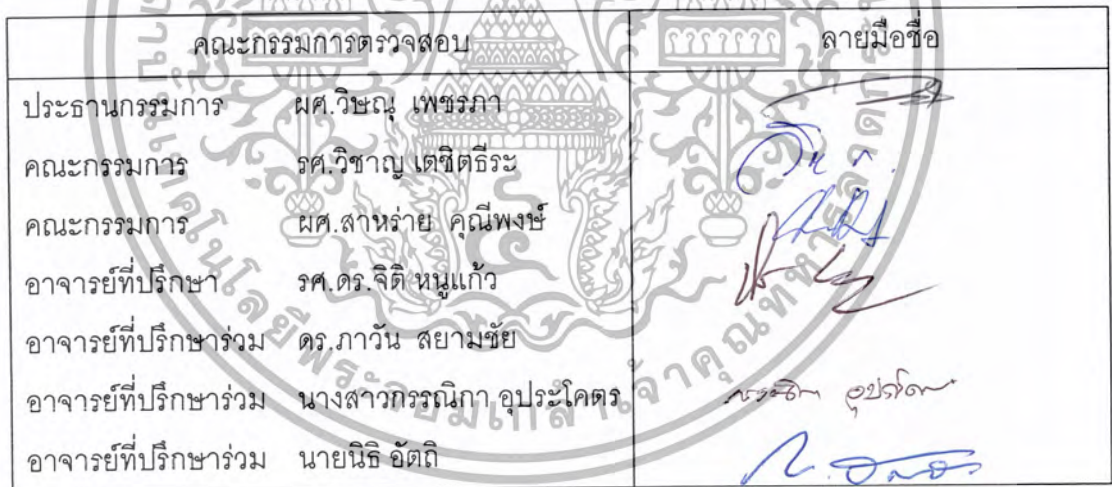 คณะกรรมการตรวจสอบ ลายมือชื่อ
ประธานกรรมการ ผศ.วิษณุ เพชรภา
คณะกรรมการ รศ.วิชาญ เตชิตธีระ
คณะกรรมการ ผศ.สาหร่าย คุณีพงษ์
อาจารย์ที่ปรึกษา รศ.ดร.จิติ หนูแก้ว
อาจารย์ที่ปรึกษาร่วม ดร.ภาวัน สยามชัย
อาจารย์ที่ปรึกษาร่วม นางสาวกรรณิกา อุประโคตร
อาจารย์ที่ปรึกษาร่วม นายนิธิ อัตถิ